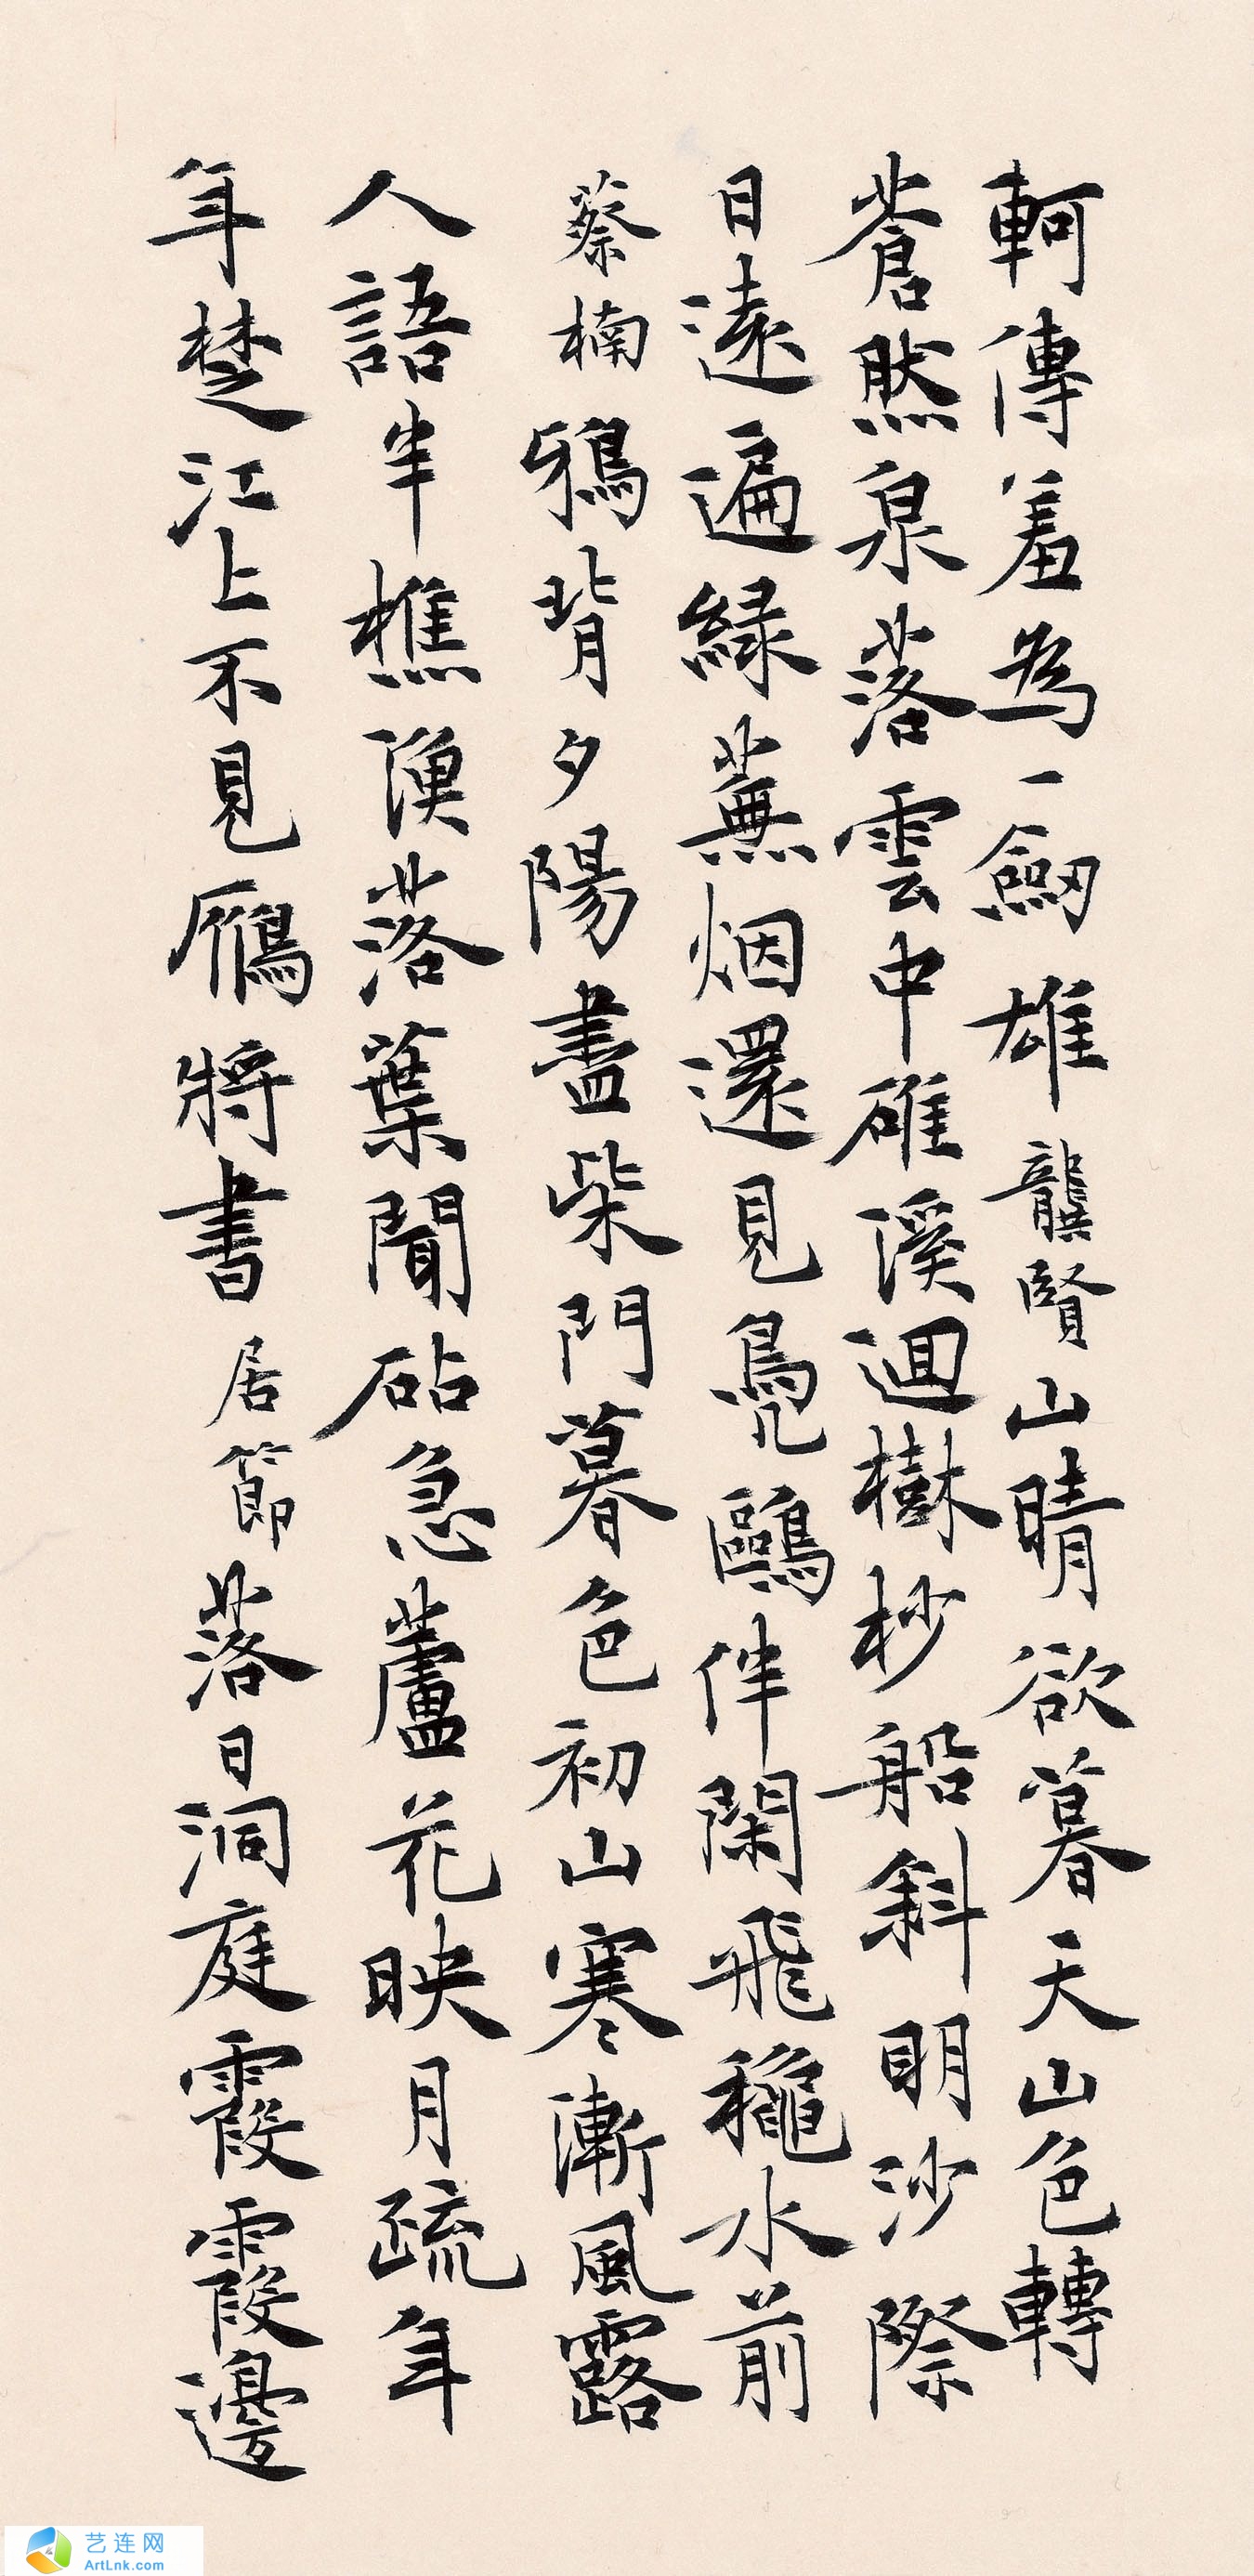 軻傳羞為一劔雄龔賢山晴欲暮天山色轉
蒼然泉落雲中碓溪迴樹杪船斜明沙際
日遠遍綠蕪烟還見鳧鷗伴閑飛穐水前
蔡楠鴉背夕陽盡柴門暮色初山寒漸風露
人語半樵漁落葉聞砧急蘆花映月疏年
年楚江上不見鴈將書居節落日洞庭霞霞邊
艺连网
ArtLnk.com